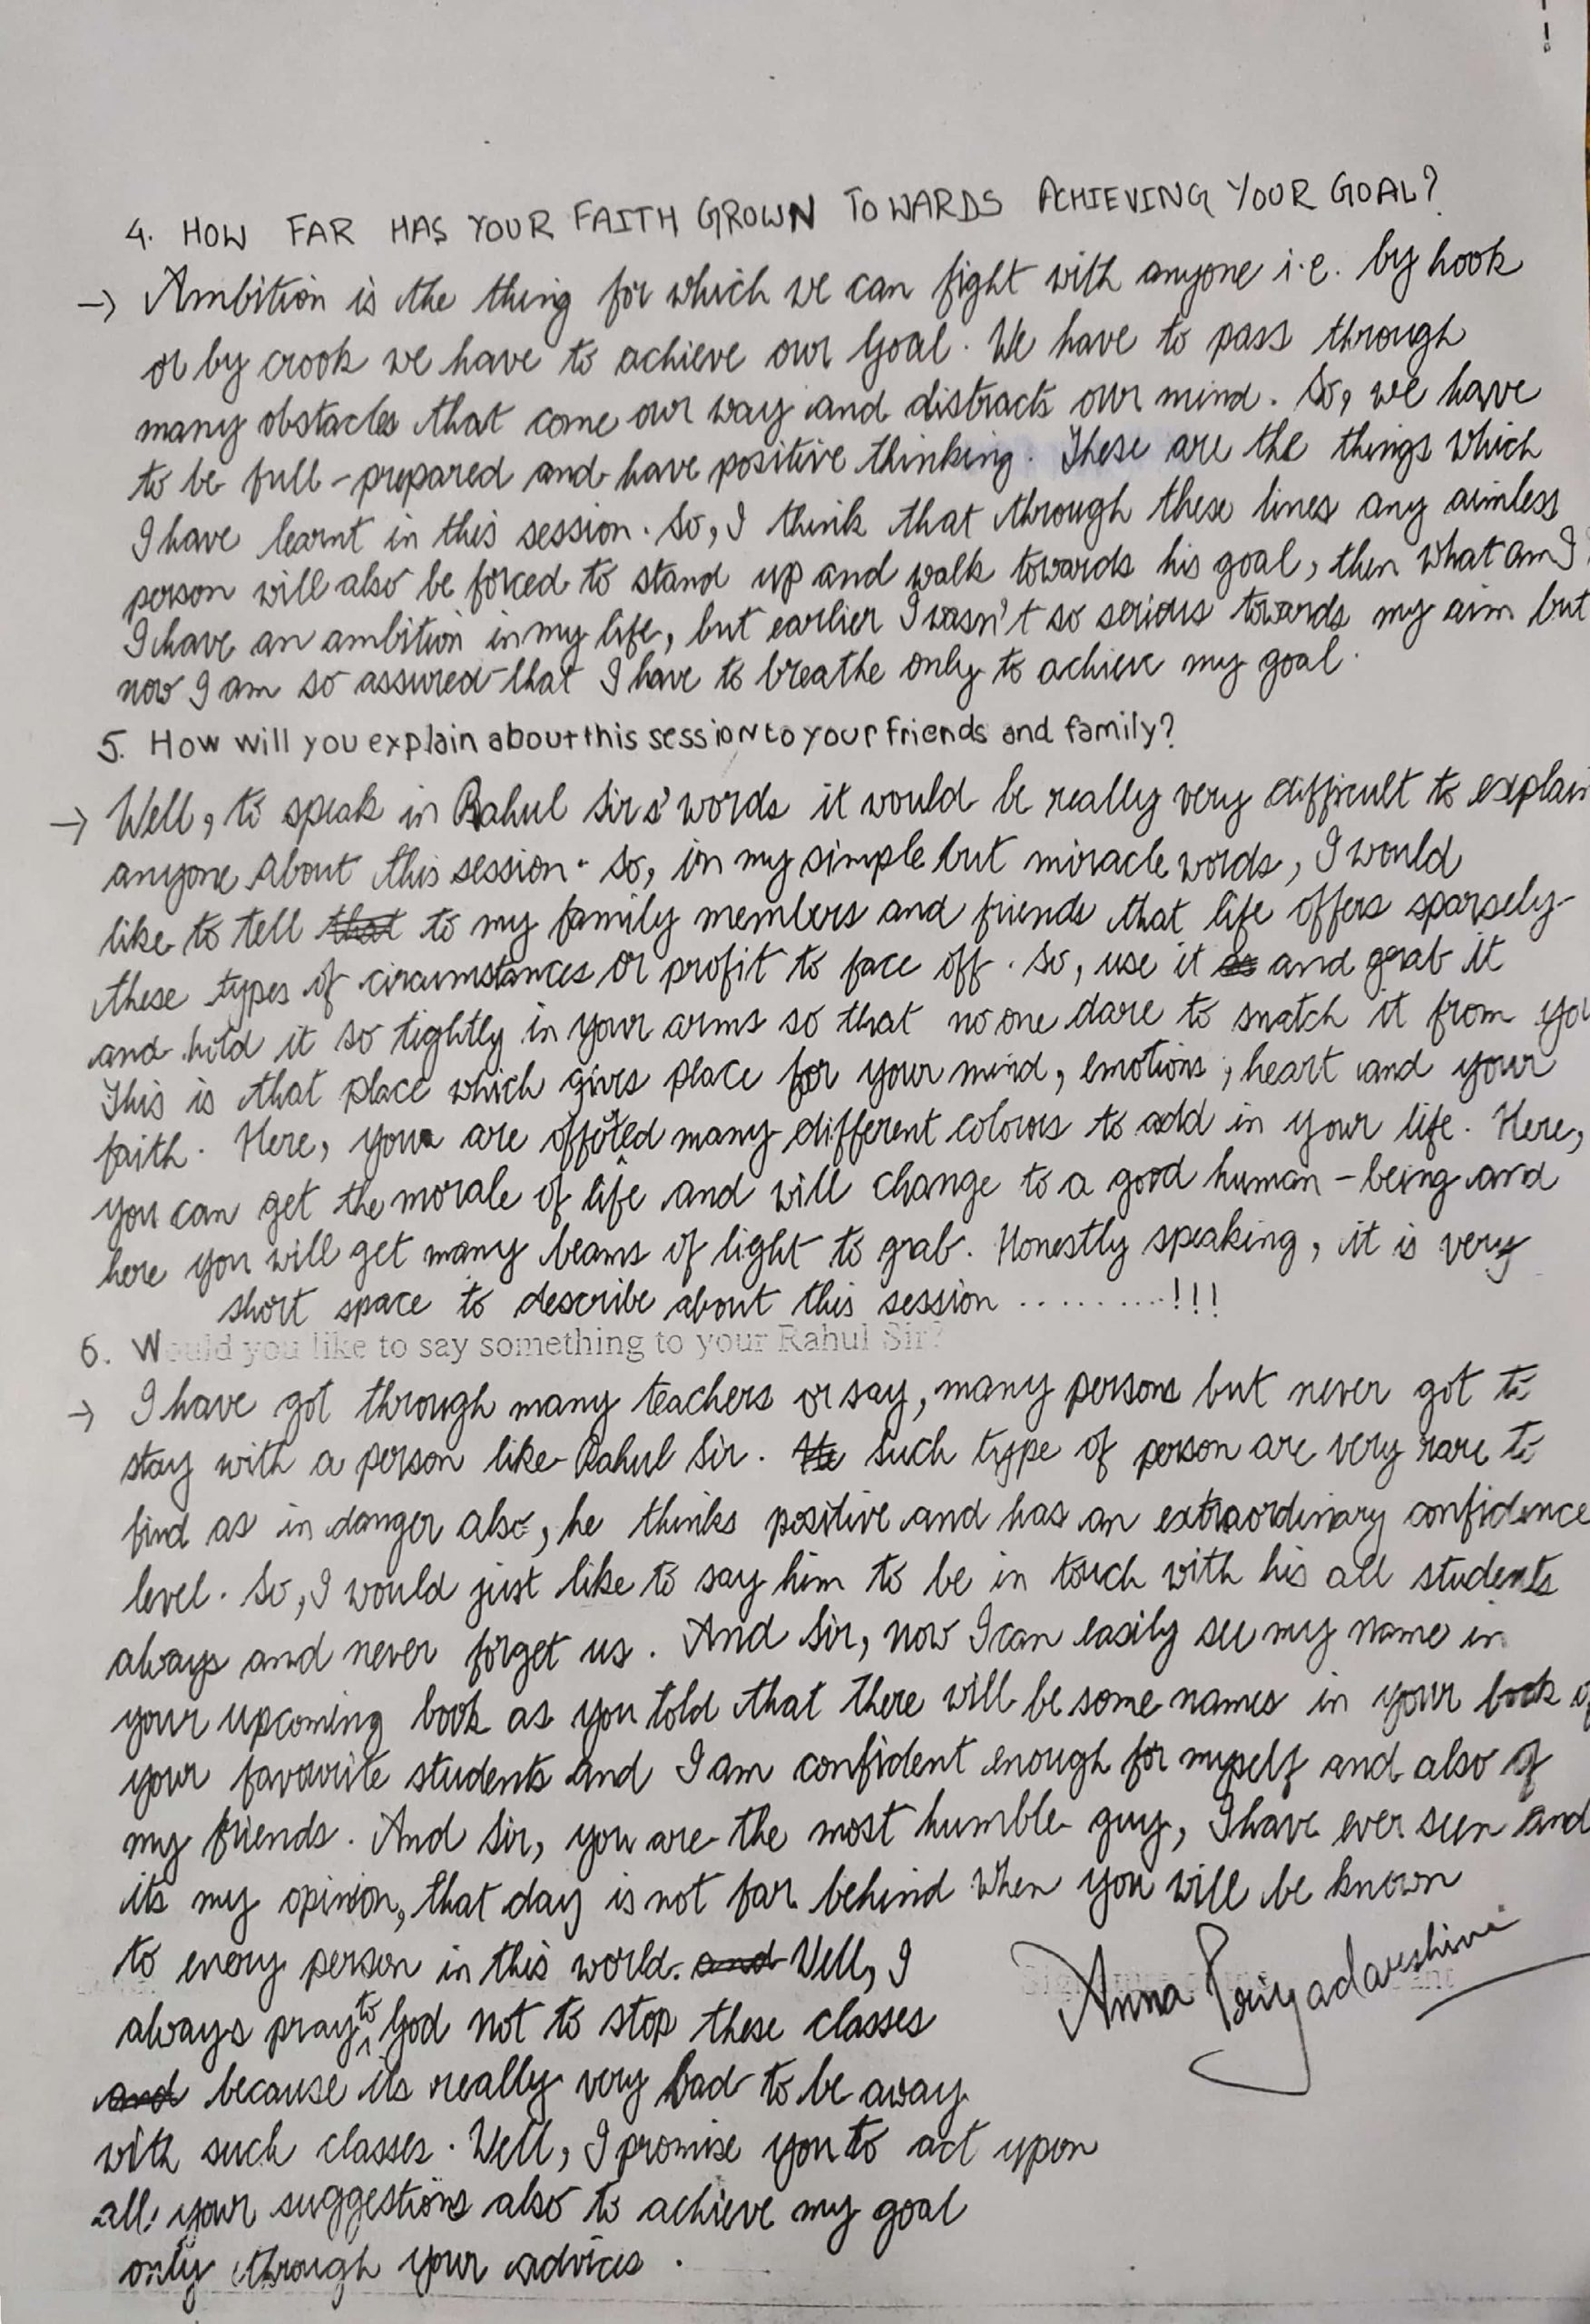 4. HOW FAR HAS YOUR FAITH GROWN TOWARDS ACHIEVING YOUR GOAL?
→ Ambition is the thing for which we can fight with anyone i.e. by hook
or by crook we have to achieve our goal. We have to pass through
many obstacles that come our way and distracts our mind. So, we have
to be full-prepared and have positive thinking. These are the things which
I have learnt in this session. So, I think that through these lines any aimless
person will also be forced to stand up and walk towards his goal, then what am I
I have an ambition in my life, but earlier I wasn't so serious towards my aim but
now I am so assured that I have to breathe only to achieve my goal.
5. How will you explain about this session to your friends and family?
→ Well, to speak in Rahul Sirs' words it would be really very difficult to explain
anyone about this session. So, in my simple but miracle words, I would
like to tell that to my family members and friends that life offers sparsely
these types of circumstances or profit to face off. So, use it as and grab it
and hold it so tightly in your arms so that no one dare to snatch it from you
This is that place which gives place for your mind, emotions, heart and your
faith. Here, you are offered many different colours to add in your life. Here,
you can get the morale of life and will change to a good human-being and
here you will get many beams of light to grab. Honestly speaking, it is very
short space to describe about this session ..........!!!
6. Would you like to say something to your Rahul Sir?
→ I have got through many teachers or say, many persons but never got to
stay with a person like Rahul Sir. He Such type of person are very rare to
find as in danger also, he thinks positive and has an extraordinary confidence
level. So, I would just like to say him to be in touch with his all students
always and never forget us. And Sir, now I can easily see my name in
your upcoming book as you told that there will be some names in your book of
your favourite students and I am confident enough for myself and also of
my friends. And Sir, you are the most humble guy, I have ever seen and
its my opinion, that day is not far behind when you will be known
to every person in this world. and Well, I
always pray to God not to stop these classes
and because its really very bad to be away
with such classes. Well, I promise you to act upon
all your suggestions also to achieve my goal
only through your advices.
Anna Priyadarshini